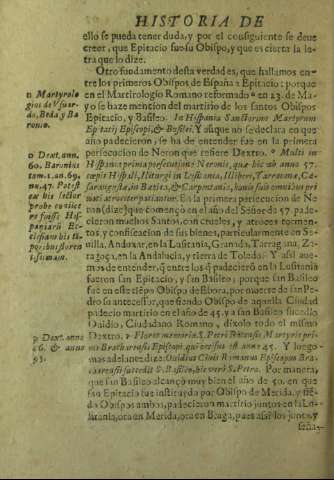 HISTORIA DE
ello se pueda tener duda, y por el consiguiente se deue
creer, que Epitacio fue su Obispo, y que es cierta la le-
tra que lo dize.
Otro fundamento desta verdad es, que hallamos en-
tre los primeros Obispos de España a Epitacio: porque
en el Martirologio Romano reformado n en 23. de Ma-
yo se haze mencion del martirio de los santos Obispos
Epitacio, y Basileo. In Hispania Sanctorum Martyrum
Epitacij Episcopi, & Basilei. Y aunque no se declara en que
año padecieron, se ha de entender fue en la primera
persecucion de Neron que refiere Dextro. o Multi in
Hispania prima persecutione Neronis, quæ hic ab anno 57.
cœpit Hispali, Iliturgi in Lusitania, Illiberi, Tarracone, Cæ-
saraugusta, in Bætica, & Carpentania, bonis suis omnibus pri-
uati atrociter patiuntur. En la primera persecucion de Ne-
ron (dize) que començò en el año del Señor de 57. pade-
cieron muchos Santos, con crueles, y atroces tormen-
tos, y confiscacion de sus bienes, particularmente en Se-
uilla, Anduxar, en la Lusitania, Granada, Tarragona, Za-
ragoça, en la Andaluzia, y tierra de Toledo. Y assi aue-
mos de entender, que entre los que padecierō en la Lusitania
fueron san Epitacio, y san Basileo; porque san Basileo
fue en este tiempo Obispo de Ebora, por muerte de san Pe-
dro su antecessor, que siendo Obispo de aquella Ciudad
padecio martirio en el año de 45. y a san Basileo sucedio
Ouidio, Ciudadano Romano, dixolo todo el mismo
Dextro, p Floret memoria S. Petri Ratensis Martyris pri-
mi Bracharensis Episcopi, qui occisus est anno 45. Y luego
mas adelante dize: Ouidius Ciuis Romanus Episcopus Bra-
carensis succedit S. Basileo, hic verò S. Petro. Por manera,
que san Basileo alcançò muy bien el año de 50. en que
san Epitacio fue instituyda por Obispo de Merida, y siē-
do Obispos ambos, padecieron martirio juntos en la Lu-
sitania, ora en Merida, ora en Braga, pues assi los junta, y
seña-
n Martyrolo-
gios de Vsuar-
do, Beda y Ba
ronio.
o Dext. ann.
60. Baronius
tom. 1. an. 69.
nu. 47. Potest
ex his scitor
probe conijce
re fuisse His-
paniarū Ec-
clesiam his tē-
poribus floren
tissimam.
p Dext. anno
& anno
95.